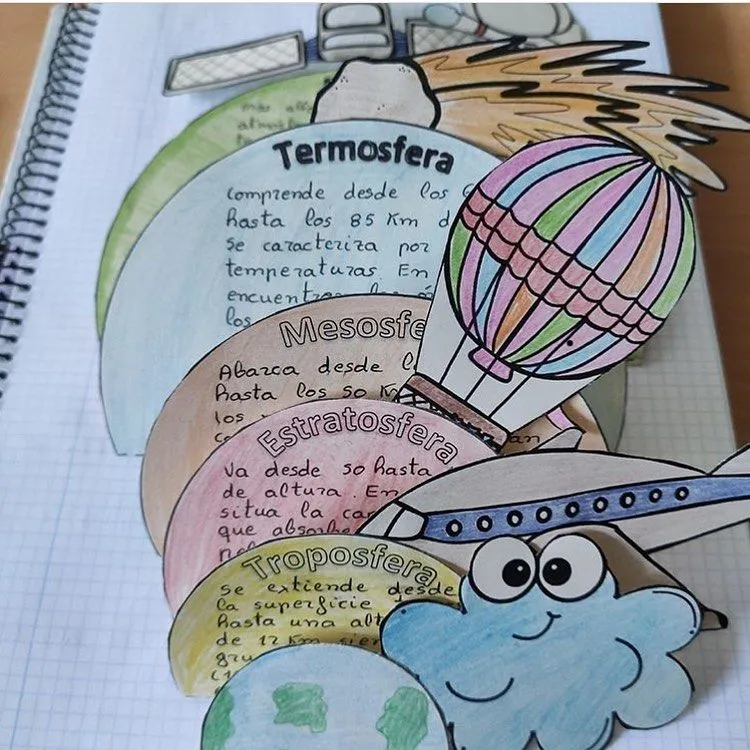 más
Termosfera
comprende desde los 6
hasta los 85 Km d
se caracteriza por
temperaturas. En
encuentran
los
Mesosfe
Abarca desde l
hasta los 50 K
los
Estratosfera
Va desde 50 hasta
de altura. En
situa la ca
que absorbe
Troposfera
se extiende desde
la superficie
hasta una alt
de 12 Km sien
gru